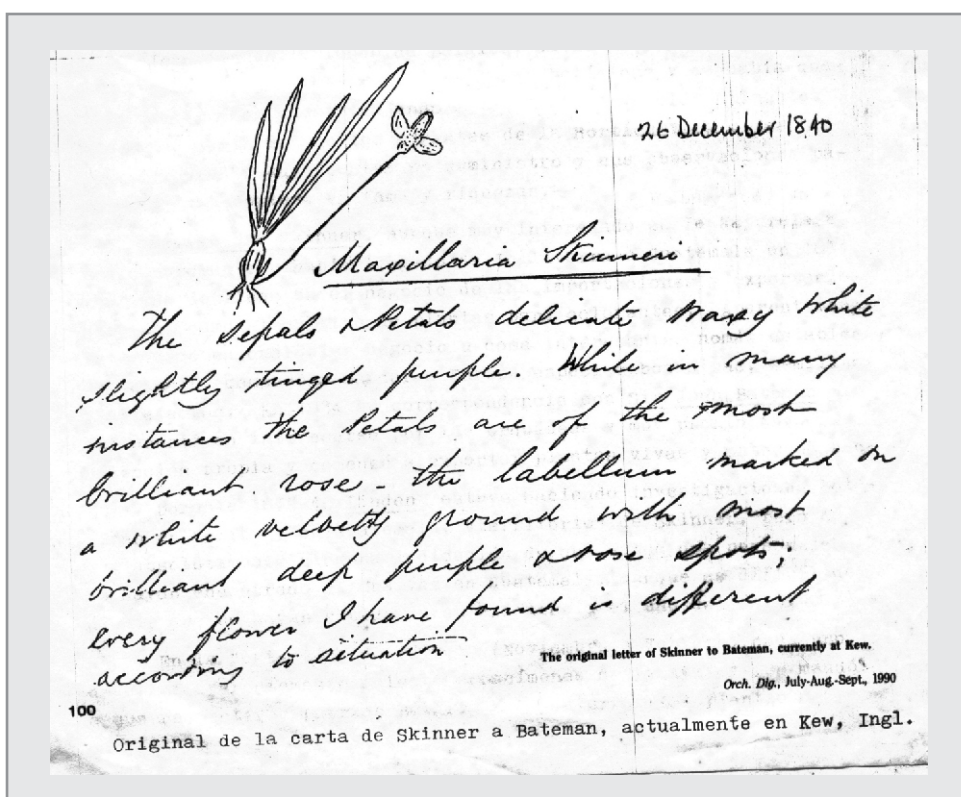 26 December 1840
Maxillaria Skinneri
The Sepals & Petals delicate waxy white
slightly tinged purple. While in many
instances the Petals are of the most
brilliant rose - the labellum marked on
a white velvety ground with most
brilliant deep purple & rose spots;
every flower I have found is different
according to situation
The original letter of Skinner to Bateman, currently at Kew.
Orch. Dig., July-Aug.-Sept., 1990
100
Original de la carta de Skinner a Bateman, actualmente en Kew, Ingl.